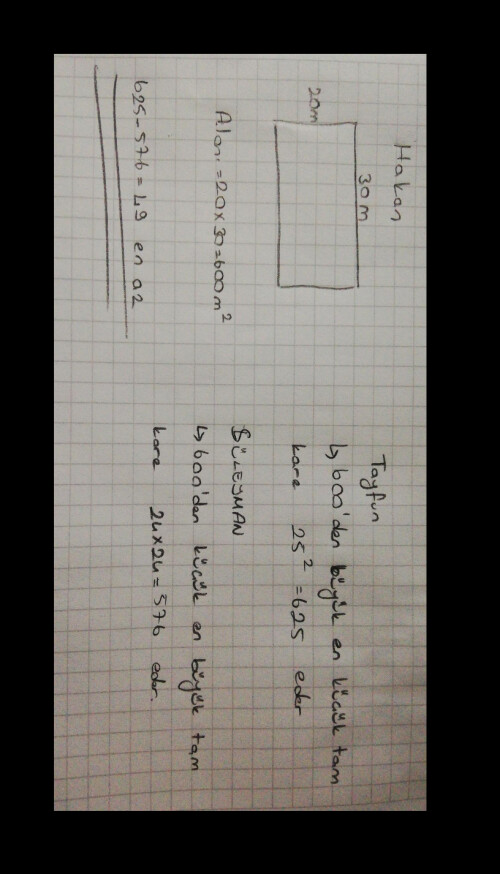 Hakan
30m
20m
Alanı = 20 x 30 = 600 m²
625 - 576 = 49 en az
Tayfun
↳ 600'den büyük en küçük tam
kare 25² = 625 eder
SÜLEYMAN
↳ 600'den küçük en büyük tam
kare 24 x 24 = 576 eder.